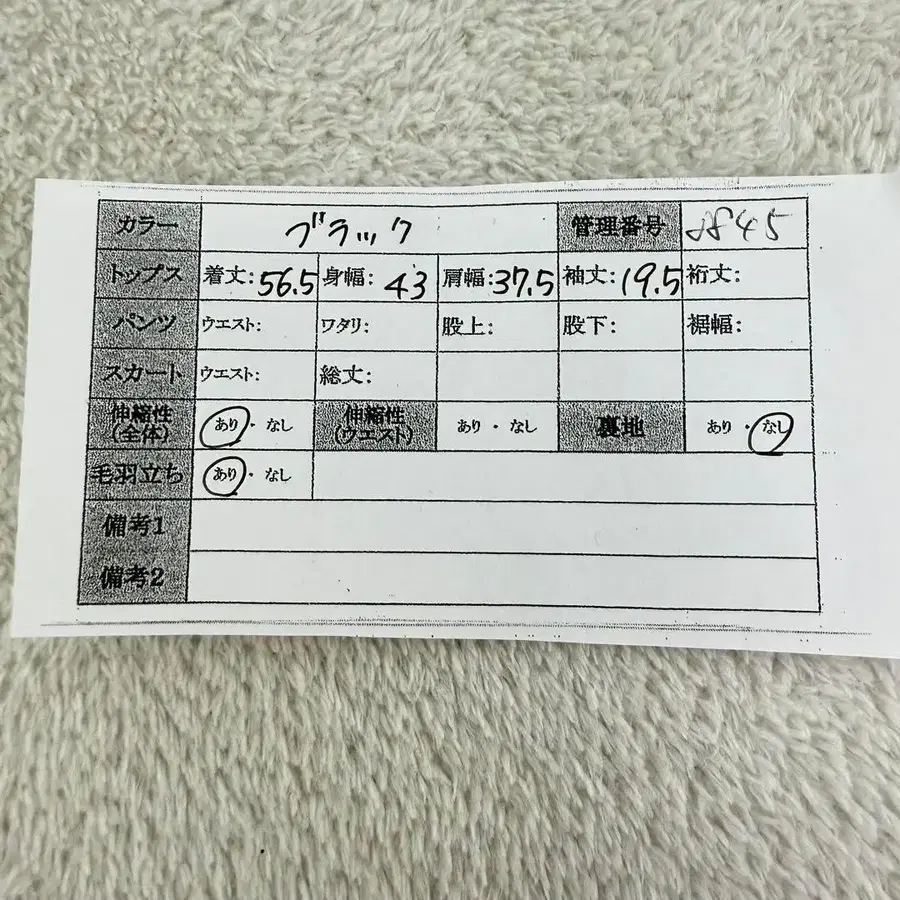 カラー ブラック 管理番号 8845
トップス 着丈:56.5 身幅:43 肩幅:37.5 袖丈:19.5 裄丈:
パンツ ウエスト: ワタリ: 股上: 股下: 裾幅:
スカート ウエスト: 総丈:
伸縮性(全体) あり・なし 伸縮性(ウエスト) あり・なし 裏地 あり・なし
毛羽立ち あり・なし
備考1
備考2